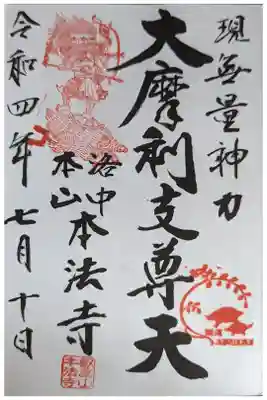 現無量神力
大摩利支尊天
洛中
本山
本法寺
令和四年七月十日
本法寺